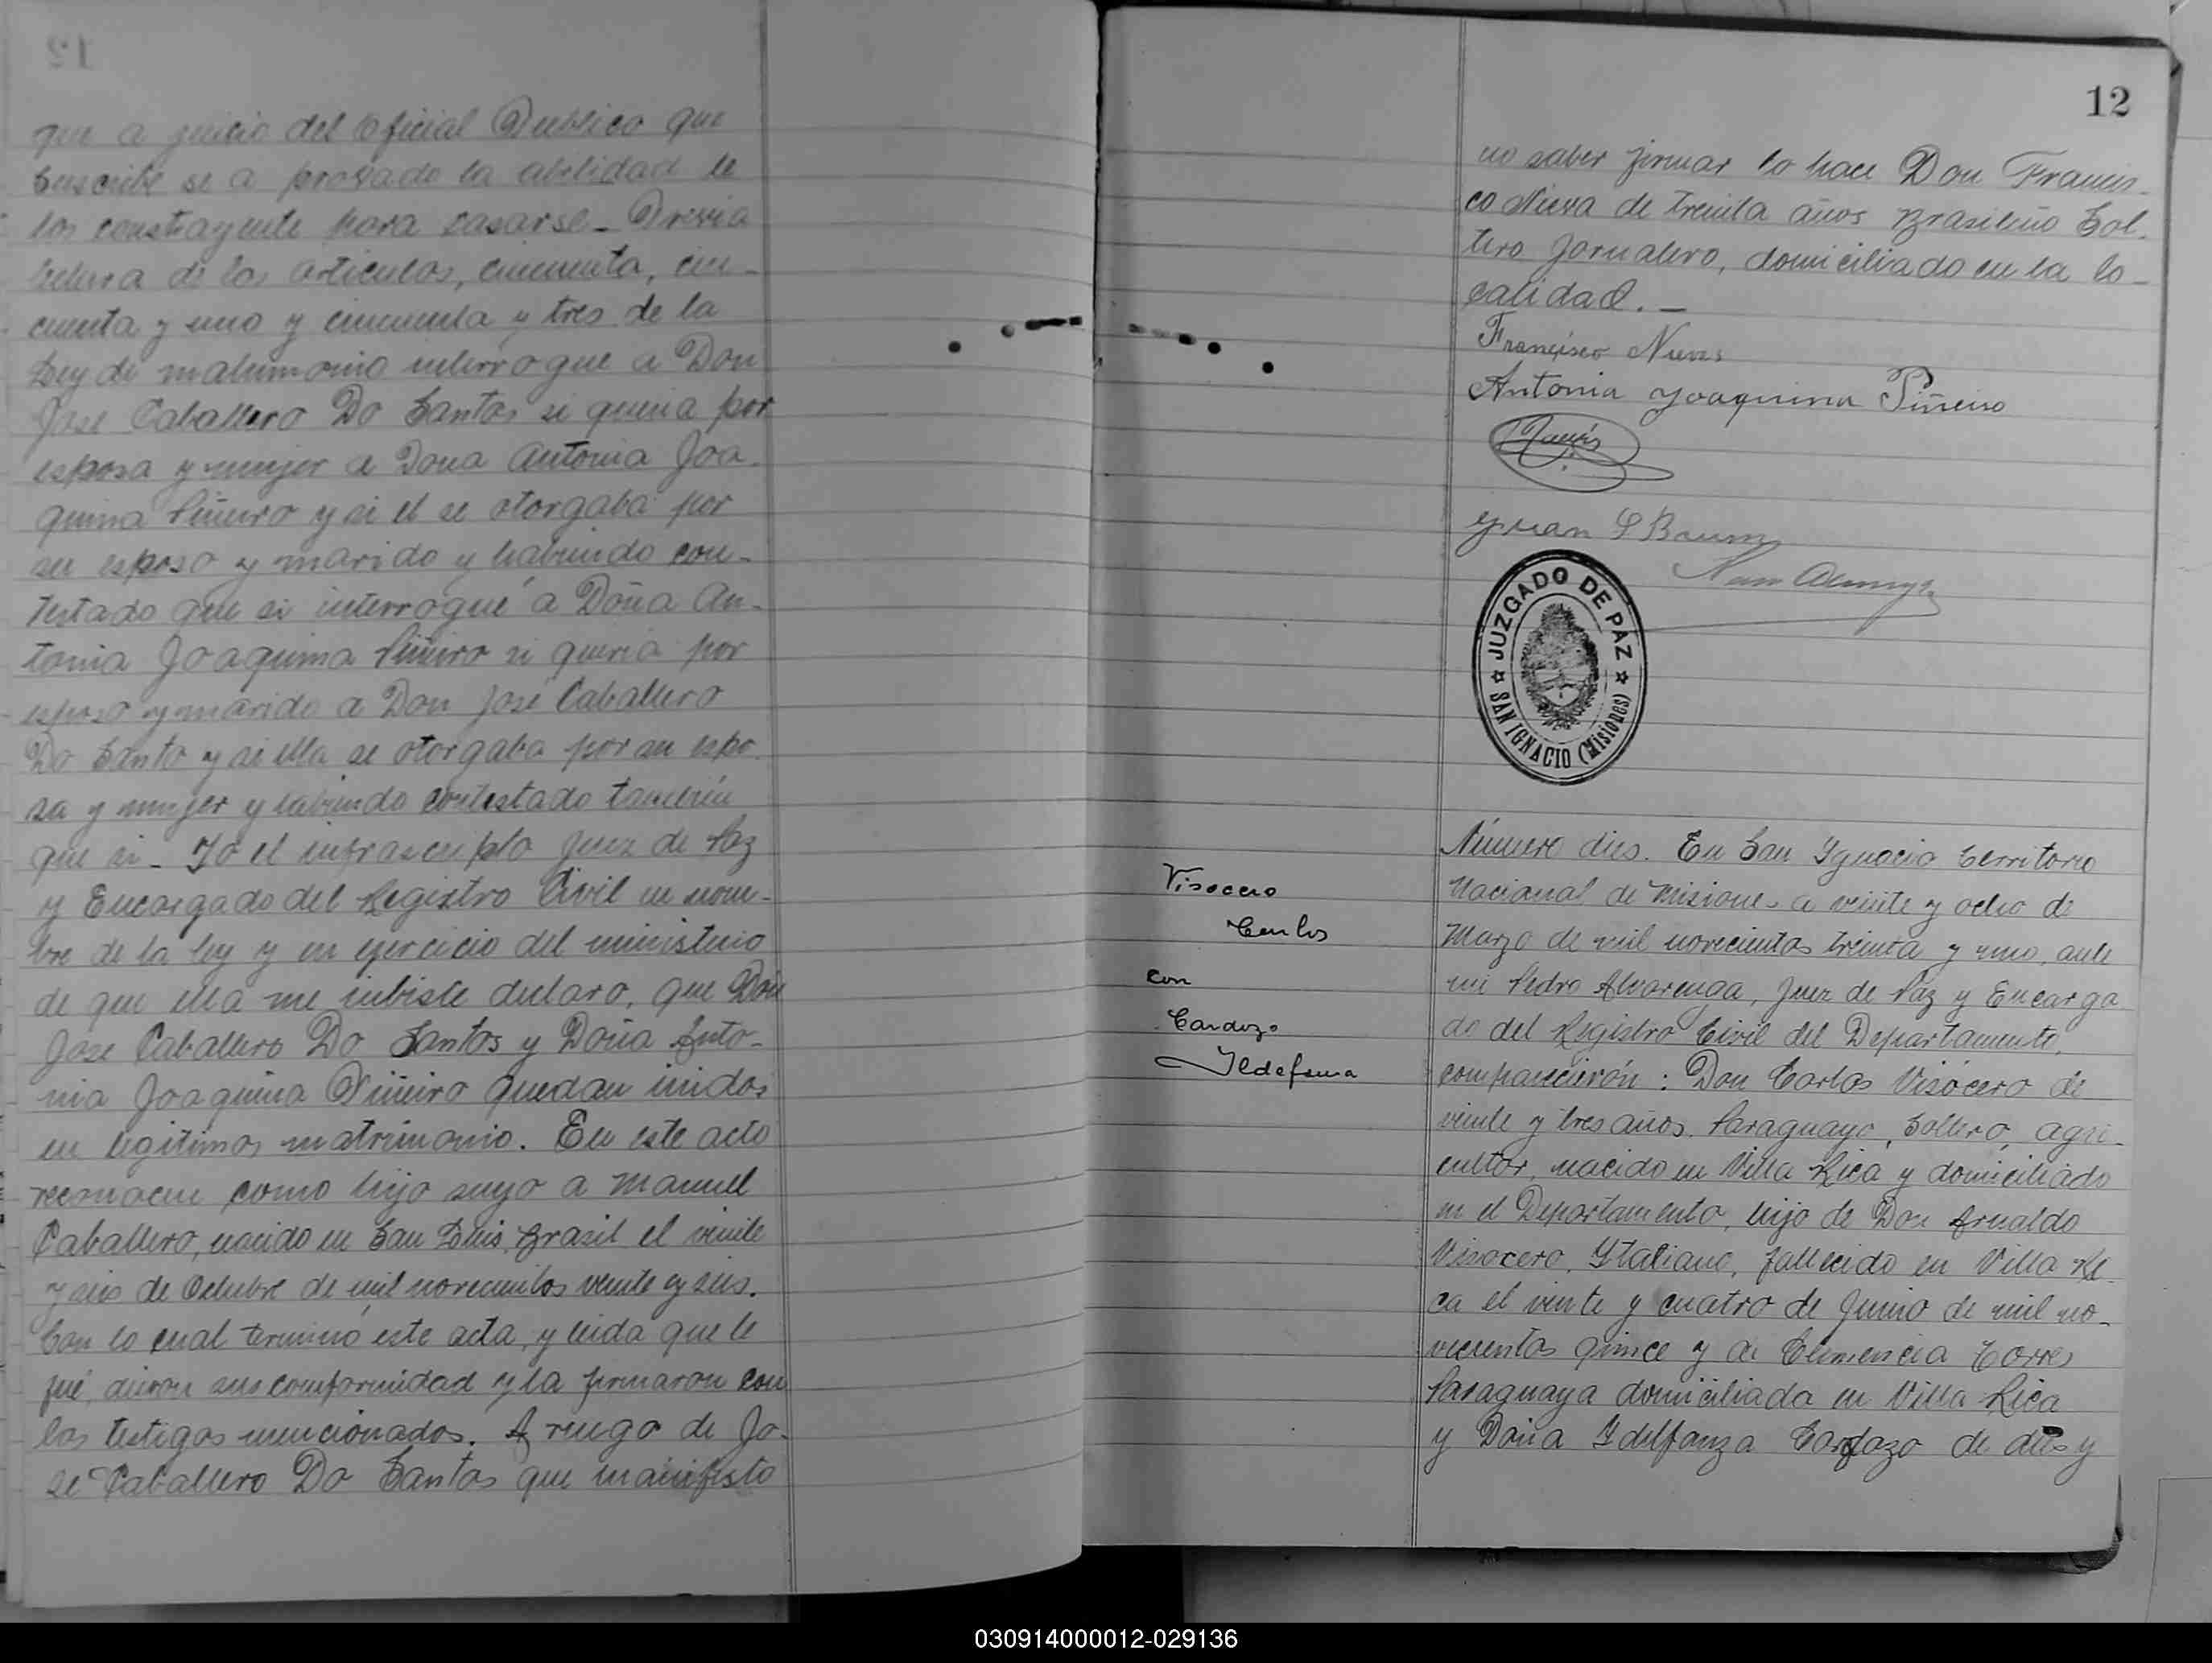 que a juicio del Oficial Publico que
suscribe se a provado la abilidad de
los constrayente para casarse - Previa
lectura de los articulos, cincuenta, cin-
cuenta y uno y cincuenta y tres de la
Ley de matrimonio interrogue a Don
Jose Caballero Do Santos si queria por
esposa y mujer a Doña Antonia Joa-
quina Piñeiro y si el se otorgaba por
su esposo y marido y habiendo con-
testado que si interrogué a Doña An-
tonia Joaquina Piñeiro si queria por
esposo y marido a Don José Caballero
Do Santo y si ella se otorgaba por su espo-
sa y mujer y habiendo contestado también
que si - Yo el infrascripto Juez de Paz
y Encargado del Registro Civil en nom-
bre de la ley y en ejercicio del ministerio
de que ella me inbiste declaro, que Don
Jose Caballero Do Santos y Doña Anto-
nia Joaquina Piñeiro quedan unidos
en legitimos matrimonio. En este acto
reconocen como hijo suyo a Manuel
Caballero, nacido en San Luis Brasil el veinte
y seis de Octubre de mil novecientos veinte y seis.
Con lo cual terminó este acta, y leida que le
fué, dieron sus conformidad y la firmaron con
los testigos mencionados. A ruego de Jo-
se Caballero Do Santos que manifesto
12
no saber firmar lo hace Don Francis-
co Nieva de treinta años Brasileño Sol-
tero Jornalero, domiciliado en la lo-
calidad. -
Francisco Nieves
Antonia Joaquina Piñeiro
Juan Baum
JUZGADO DE PAZ
SAN IGNACIO (Misiones)
Visocero
Carlos
con
Cardozo
Ildefonsa
Número dies. En San Ygnacio territorio
Nacional de Misiones a veinte y ocho de
Marzo de mil novecientos treinta y uno, ante
mi Pedro Alvarenga, Juez de Paz y Encarga
do del Registro Civil del Departamento,
comparecierón: Don Carlos Visócero de
veinte y tres años. Paraguayo, Soltero, agri-
cultor, nacido en Villa Rica y domiciliado
en el Departamento, hijo de Don Arnaldo
Visocero, Ytaliano, fallecido en Villa Ri-
ca el veinte y cuatro de Junio de mil no-
vecientos quince y de Clemencia Torres
Paraguaya domiciliada en Villa Rica
y Doña Ydelfonza Cardozo de dies y
030914000012-029136